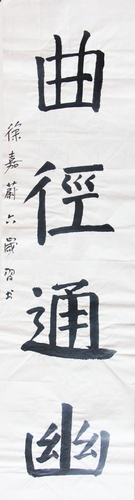 曲徑通幽
徐嘉蔚六歲習书